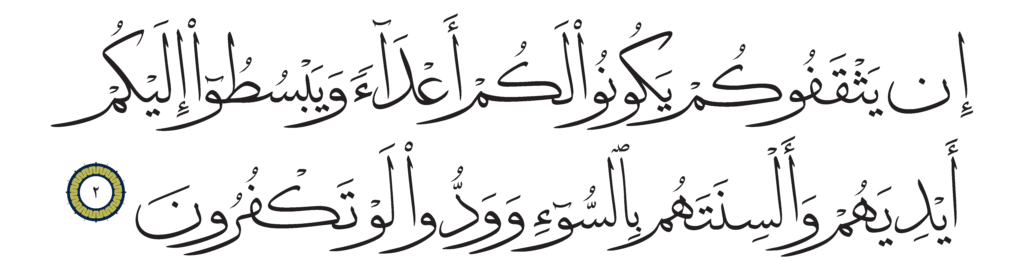 إِن يَثْقَفُوكُمْ يَكُونُوا۟ لَكُمْ أَعْدَآءً وَيَبْسُطُوٓا۟ إِلَيْكُمْ
أَيْدِيَهُمْ وَأَلْسِنَتَهُم بِٱلسُّوٓءِ وَوَدُّوا۟ لَوْ تَكْفُرُونَ ٢